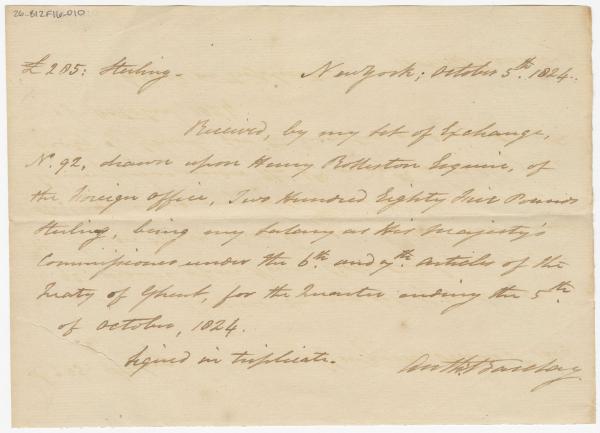 26-B12F16-010
£285: Sterling.
New York; October 5th. 1824.
Received, by my set of Exchange,
No. 92, drawn upon Henry Rolleston Esquire, of
the Foreign Office, Two Hundred Eighty Five Pounds
Sterling, being my salary as His Majesty's
Commissioner under the 6th and 7th. Articles of the
Treaty of Ghent, for the Quarter ending the 5th
of October, 1824.
Signed in triplicate.
Anth: Barclay